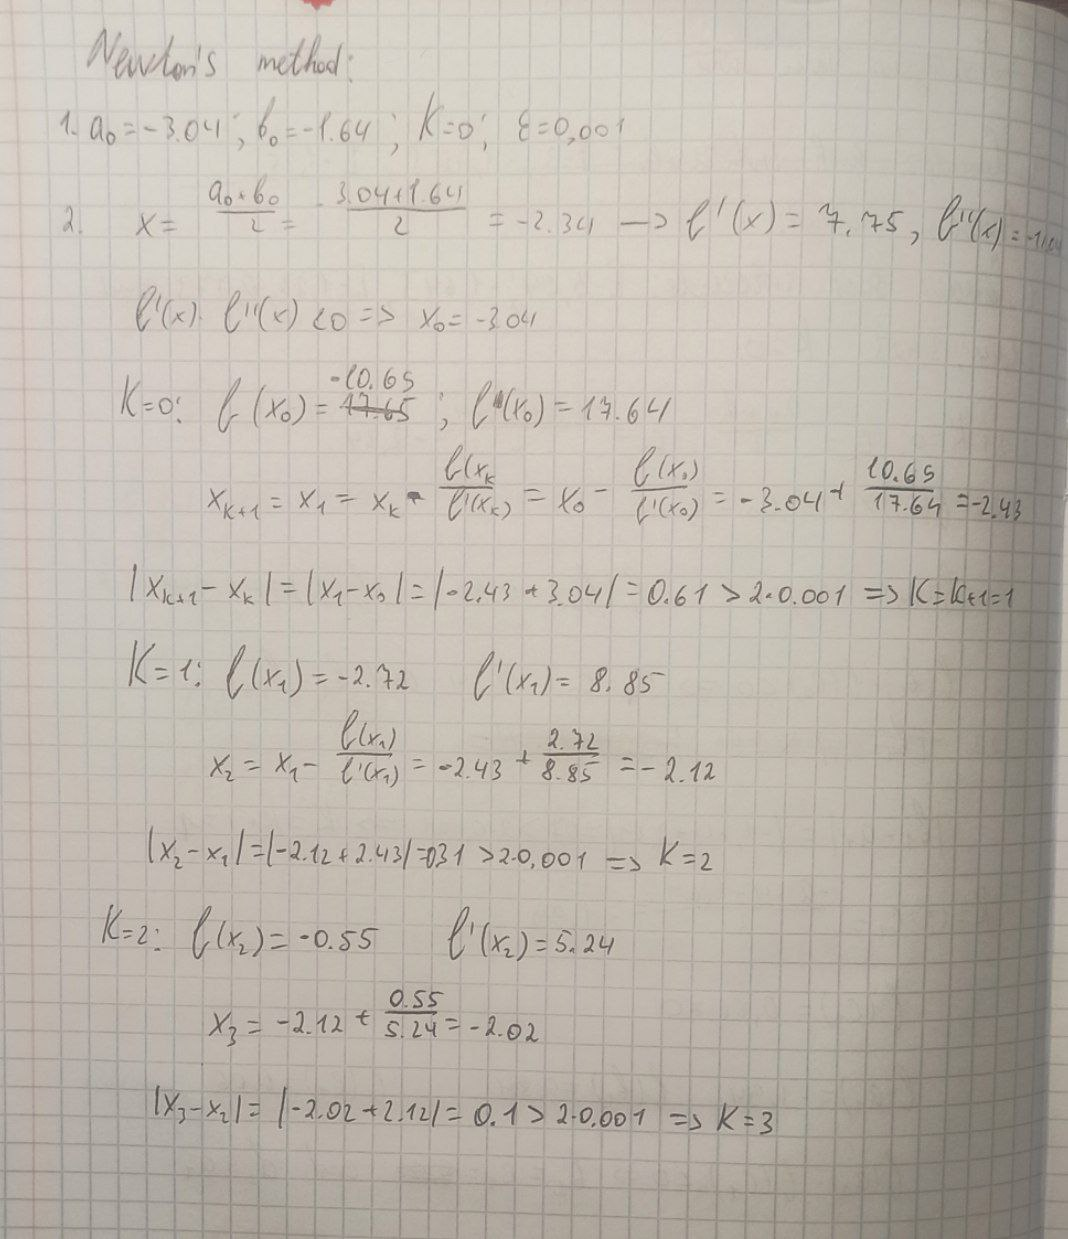 Newton's method:
1. a₀ = -3.04; b₀ = -1.64; K=0; ε=0,001
2. x = (a₀+b₀)/2 = -(3.04+1.64)/2 = -2.34 → f'(x) = 7.75, f''(x) =
f'(x)·f''(x) <0 => x₀ = -3.04
-10.65
K=0: f(x₀) = 17.65; f'(x₀) = 17.64
xₖ₊₁ = x₁ = xₖ - f(xₖ/f'(xₖ) = x₀ - f(x₀)/f'(x₀) = -3.04 + 10.65/17.64 = -2.43
|xₖ₊₁ - xₖ| = |x₁-x₀| = |-2.43 + 3.04| = 0.61 > 2·0.001 => K=K+1=1
K=1: f(x₁) = -2.72 f'(x₁) = 8.85
x₂ = x₁ - f(x₁)/f'(x₁) = -2.43 + 2.72/8.85 = -2.12
|x₂-x₁| = |-2.12+2.43| = 031 > 2·0,001 => K=2
K=2: f(x₂) = -0.55 f'(x₂) = 5.24
x₃ = -2.12 + 0.55/5.24 = -2.02
|x₃-x₂| = |-2.02+2.12| = 0.1 > 2·0.001 => K=3